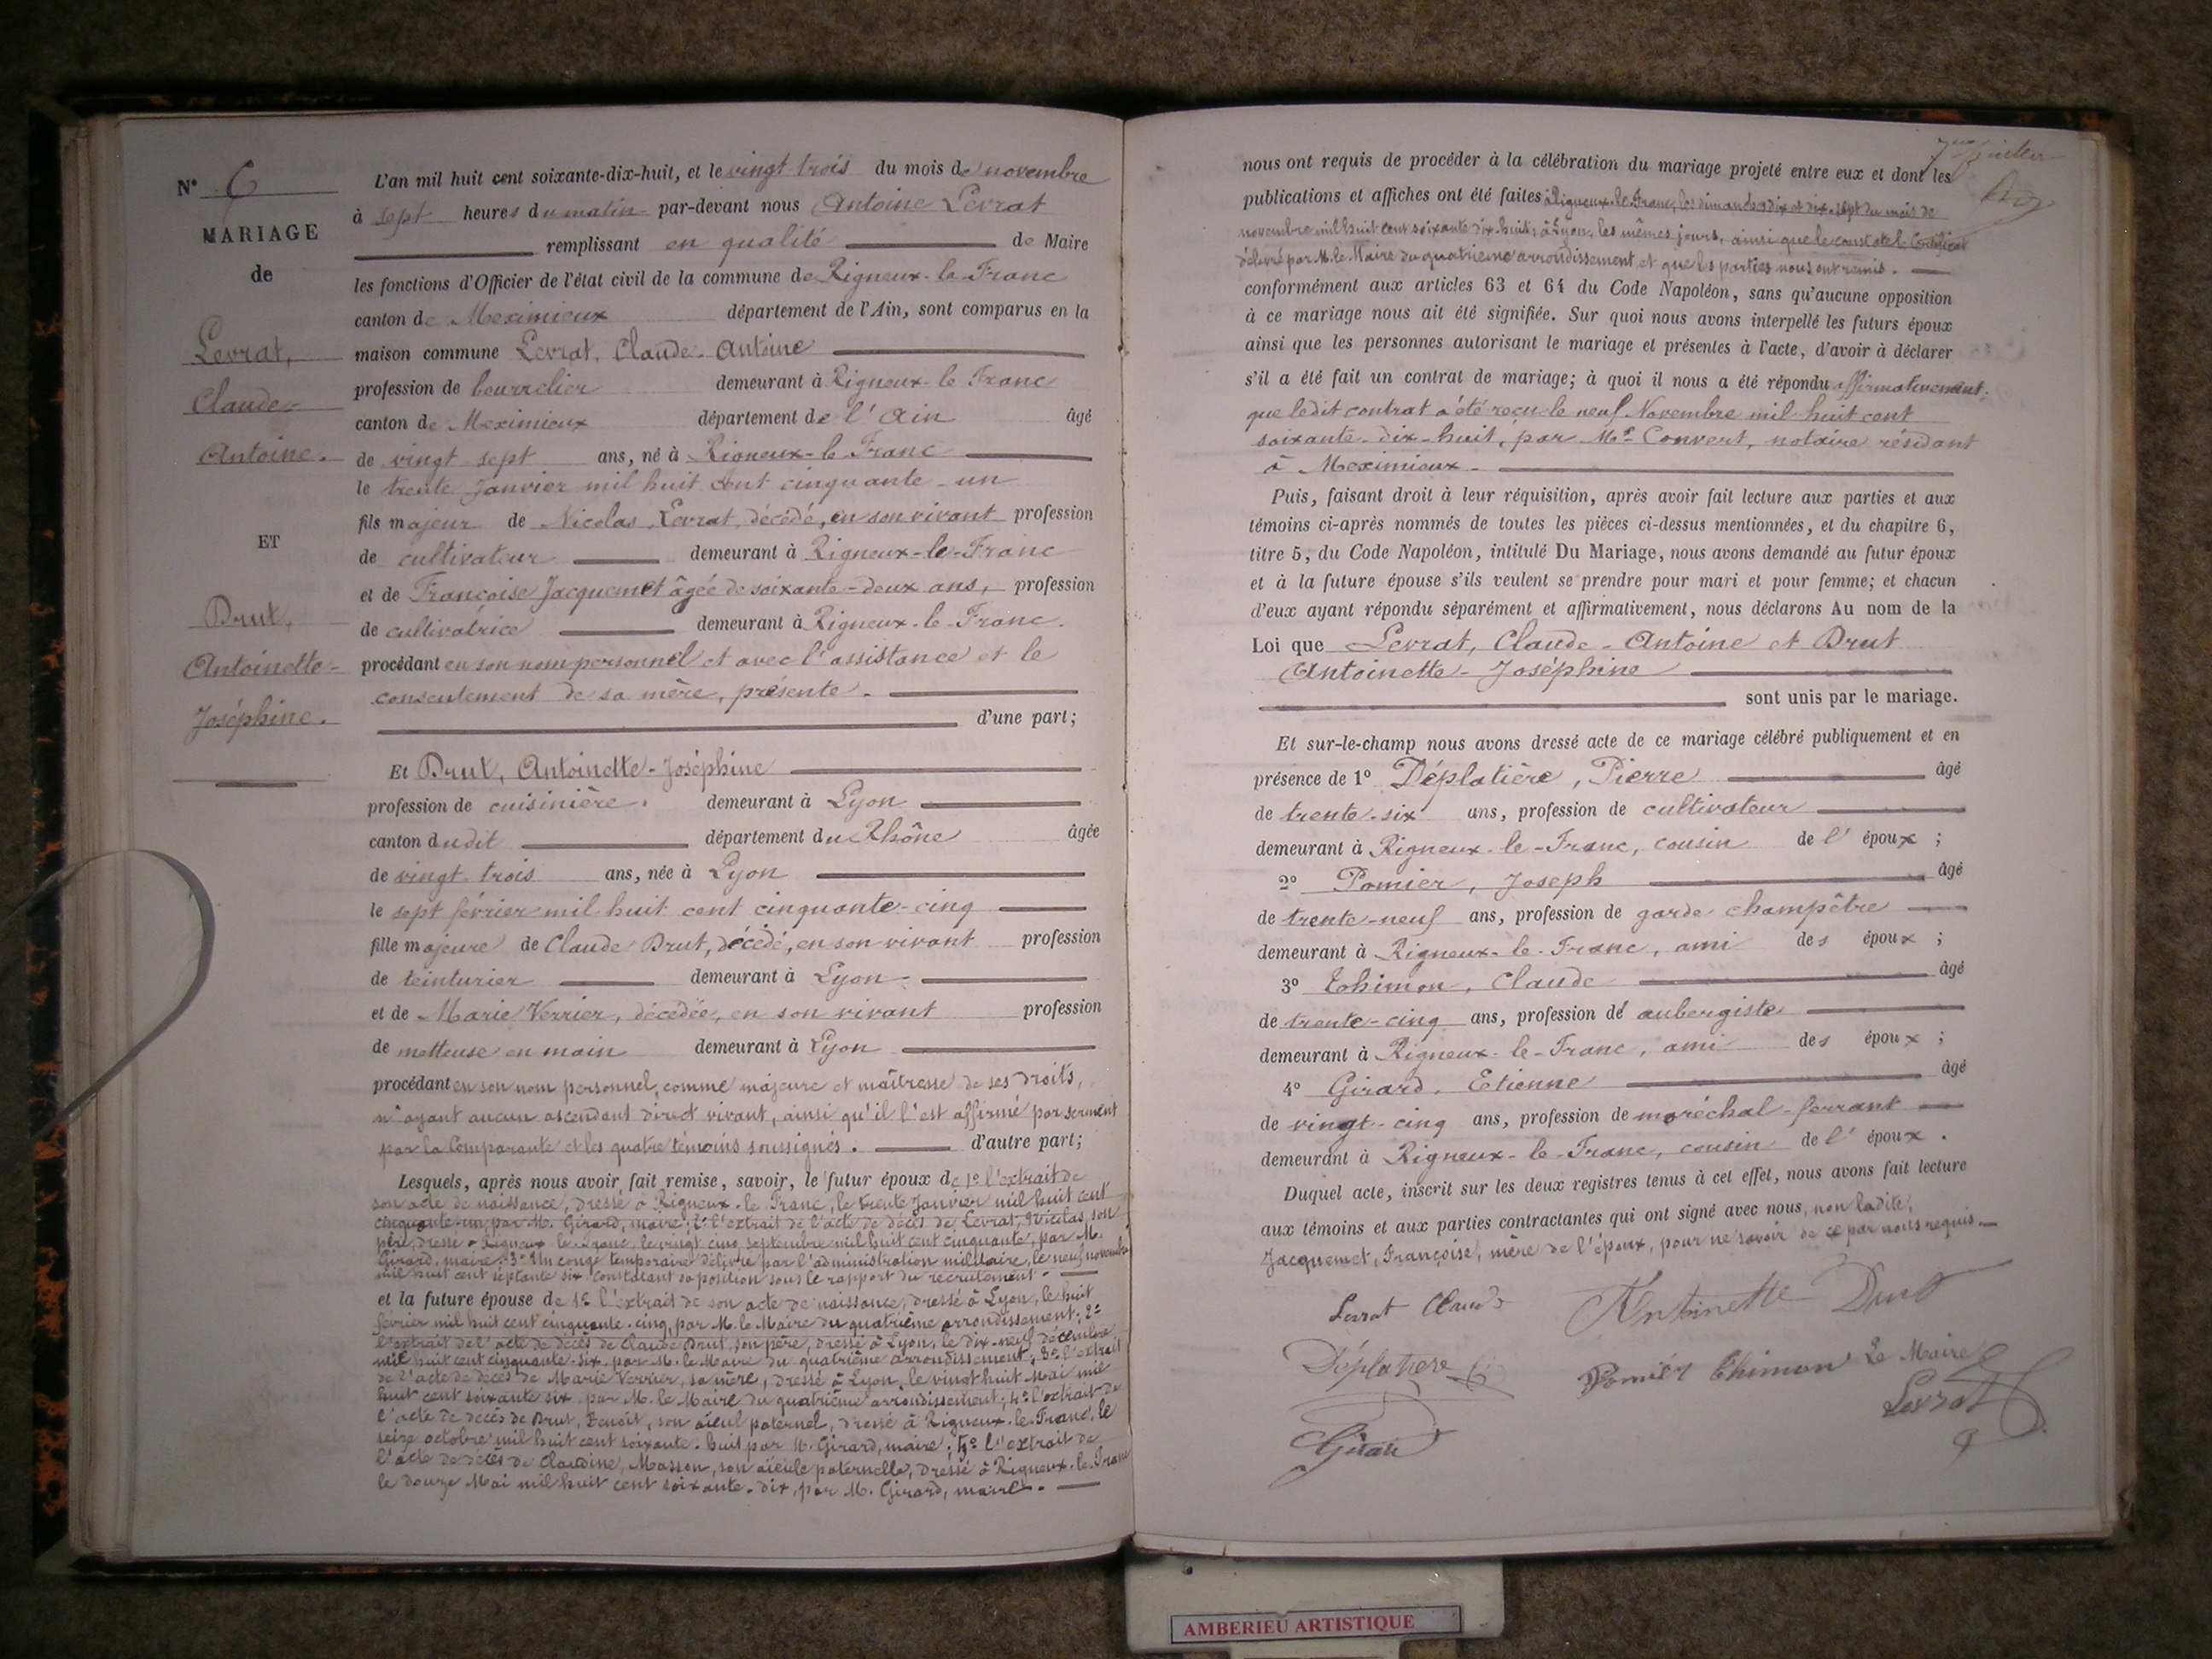 N° 6
MARIAGE
de
Levrat,
Claude-
Antoine.
ET
Drut,
Antoinette-
Joséphine.
L'an mil huit cent soixante-dix-huit, et le vingt trois du mois de novembre
à sept heures du matin par-devant nous Antoine Levrat
remplissant en qualité de Maire
les fonctions d'Officier de l'état civil de la commune de Rigneux-le-Franc
canton de Meximieux département de l'Ain, sont comparus en la
maison commune Levrat, Claude-Antoine
profession de bourrelier demeurant à Rigneux-le Franc
canton de Meximieux département de l'Ain âgé
de vingt sept ans, né à Rigneux-le Franc
le trente Janvier mil huit cent cinquante-un
fils majeur de Nicolas Levrat, décédé, en son vivant profession
de cultivateur demeurant à Rigneux-le-Franc
et de Françoise Jacquemet âgée de soixante-deux ans, profession
de cultivatrice demeurant à Rigneux-le-Franc.
procédant en son nom personnel et avec l'assistance et le
consentement de sa mère, présente.
d'une part;
Et Drut, Antoinette-Joséphine
profession de cuisinière. demeurant à Lyon
canton dudit département du Rhône âgée
de vingt trois ans, née à Lyon
le sept février mil huit cent cinquante-cinq
fille majeure de Claude Drut, décédé, en son vivant profession
de teinturier demeurant à Lyon
et de Marie Verrier, décédée, en son vivant profession
de metteuse en main demeurant à Lyon
procédant en son nom personnel, comme majeure et maîtresse de ses droits,
n'ayant aucun ascendant direct vivant, ainsi qu'il l'est affirmé par serment
par la Comparante et les quatre témoins soussignés. d'autre part;
Lesquels, après nous avoir fait remise, savoir, le futur époux de 1° l'extrait de
son acte de naissance, dressé à Rigneux-le Franc, le trente Janvier mil huit cent
cinquante-un, par M. Girard, maire; 2° l'extrait de l'acte de décès de Levrat, Nicolas, son
père, dressé à Rigneux-le-Franc, le vingt cinq septembre mil huit cent cinquante, par M.
Girard, maire; 3° Un congé temporaire délivré par l'administration militaire, le neuf novembre
mil huit cent septante six constatant sa position sous le rapport du recrutement.
et la future épouse de 1° l'extrait de son acte de naissance, dressé à Lyon, le huit
février mil huit cent cinquante-cinq, par M. le Maire du quatrième arrondissement; 2°
l'extrait de l'acte de décès de Claude Drut, son père, dressé à Lyon, le dix-neuf décembre
mil huit cent cinquante-six, par M. le Maire du quatrième arrondissement; 3° l'extrait
de l'acte de décès de Marie Verrier, sa mère, dressé à Lyon, le vingt huit Mai mil
huit cent soixante six, par M. le Maire du quatrième arrondissement; 4° l'extrait de
l'acte de décès de Drut, Benoît, son aïeul paternel, dressé à Rigneux-le-Franc, le
seize octobre mil huit cent soixante-huit par M. Girard, maire; 5° l'extrait de
l'acte de décès de Claudine, Masson, son aïeule paternelle, dressé à Rigneux-le-Franc
le douze Mai mil huit cent soixante-dix, par M. Girard, maire.
nous ont requis de procéder à la célébration du mariage projeté entre eux et dont les
publications et affiches ont été faites à Rigneux-le-Franc, les dimanches dix et dix-sept du mois de
novembre mil huit cent soixante dix-huit, à Lyon, les mêmes jours, ainsi que le constate le Certificat
délivré par M. le Maire du quatrième arrondissement et que les parties nous ont remis.
conformément aux articles 63 et 64 du Code Napoléon, sans qu'aucune opposition
à ce mariage nous ait été signifiée. Sur quoi nous avons interpellé les futurs époux
ainsi que les personnes autorisant le mariage et présentes à l'acte, d'avoir à déclarer
s'il a été fait un contrat de mariage; à quoi il nous a été répondu affirmativement.
que ledit contrat a été reçu le neuf Novembre mil-huit cent
soixante-dix-huit, par Me Convert, notaire résidant
à Meximieux.
Puis, faisant droit à leur réquisition, après avoir fait lecture aux parties et aux
témoins ci-après nommés de toutes les pièces ci-dessus mentionnées, et du chapitre 6,
titre 5, du Code Napoléon, intitulé Du Mariage, nous avons demandé au futur époux
et à la future épouse s'ils veulent se prendre pour mari et pour femme; et chacun
d'eux ayant répondu séparément et affirmativement, nous déclarons Au nom de la
Loi que Levrat, Claude-Antoine et Drut
Antoinette-Joséphine
sont unis par le mariage.
Et sur-le-champ nous avons dressé acte de ce mariage célébré publiquement et en
présence de 1° Déplatière, Pierre âgé
de trente-six ans, profession de cultivateur
demeurant à Rigneux-le-Franc, cousin de l'époux;
2° Pomier, Joseph âgé
de trente-neuf ans, profession de garde champêtre
demeurant à Rigneux-le-Franc, ami des époux;
3° Thimon, Claude âgé
de trente-cinq ans, profession de aubergiste
demeurant à Rigneux-le-Franc, ami des époux;
4° Girard, Etienne âgé
de vingt-cinq ans, profession de maréchal-ferrant
demeurant à Rigneux-le-Franc, cousin de l'époux.
Duquel acte, inscrit sur les deux registres tenus à cet effet, nous avons fait lecture
aux témoins et aux parties contractantes qui ont signé avec nous, non ladite,
Jacquemet, Françoise, mère de l'époux, pour ne savoir de ce par nous requis.
Levrat Claude Antoinette Drut
Déplatière Pomiér Thimon Le Maire
Levrat
Girard
AMBERIEU ARTISTIQUE